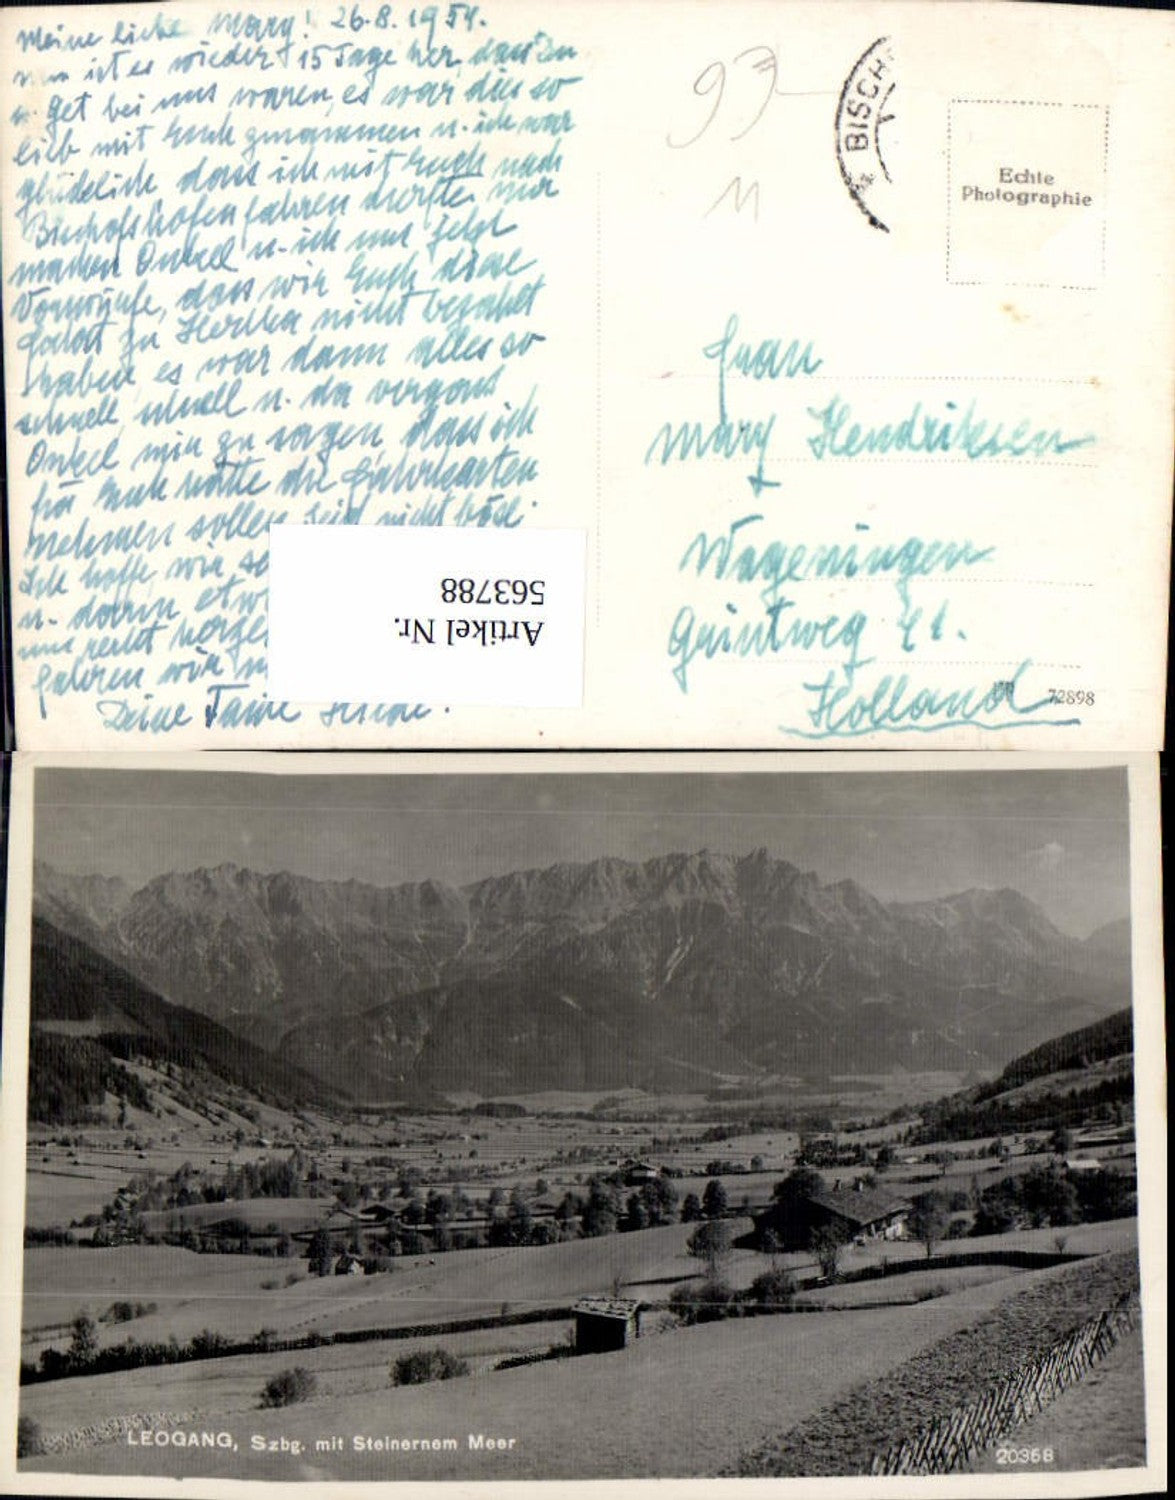 Meine liebe Mary! 26.8.1954.
nun ist es wieder 15 Tage her, dass Du
u. Get bei uns waren, es war dies so
lieb mit Euch zusammen u. ich war
glücklich dass ich mit Euch nach
Bischofshofen fahren durfte, nur
machen Onkel u. ich uns jetzt
Vorwürfe, dass wir Euch diese
Fahrt zu Hertha nicht bezahlt
haben, es war dann alles so
schnell, schnell u. da vergass
Onkel mir zu sagen, dass ich
für Euch hätte die Fahrkarten
nehmen sollen, seid nicht böse.
Ich hoffe, wir
u. dann etw
uns recht
fahren wir
Deine Tante
93
11
* BISCH
Echte
Photographie
Frau
Mary Hendriksen
Wageningen
41.
Holland
72898
Artikel Nr.
563788
LEOGANG, Szbg. mit Steinernem Meer
20368